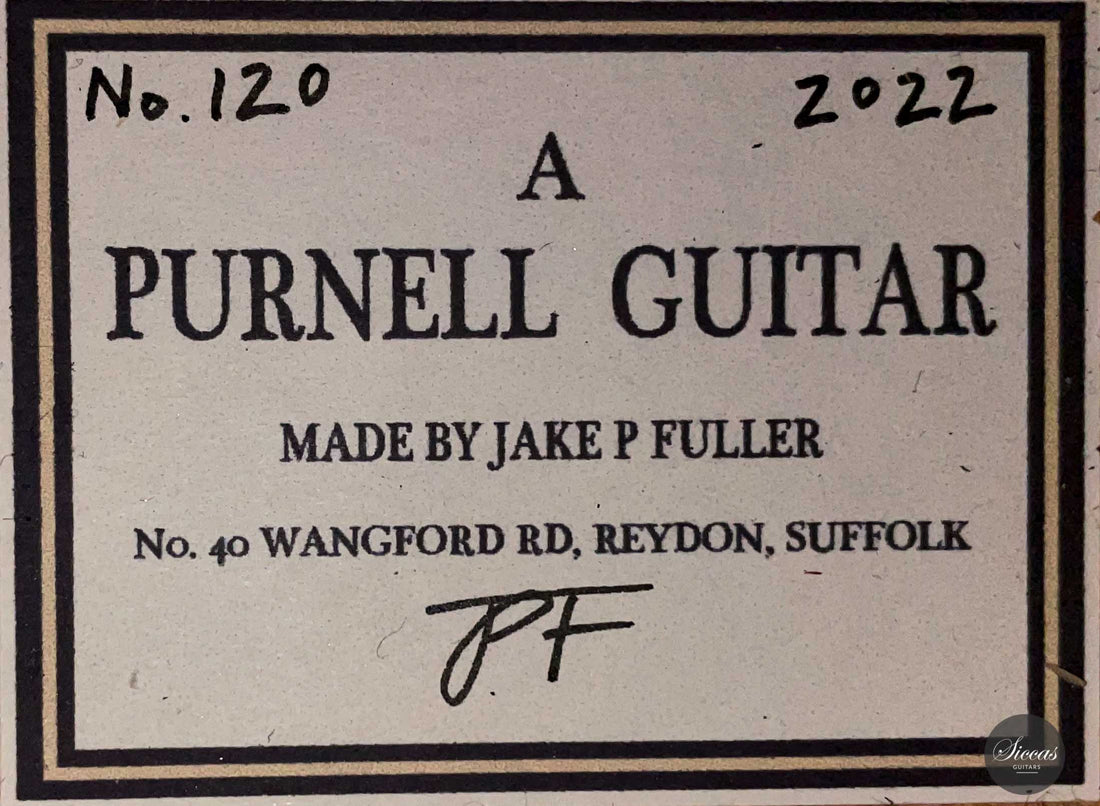 No. 120
2022
A
PURNELL GUITAR
MADE BY JAKE P FULLER
No. 40 WANGFORD RD, REYDON, SUFFOLK
JPF
Siccas
GUITARS